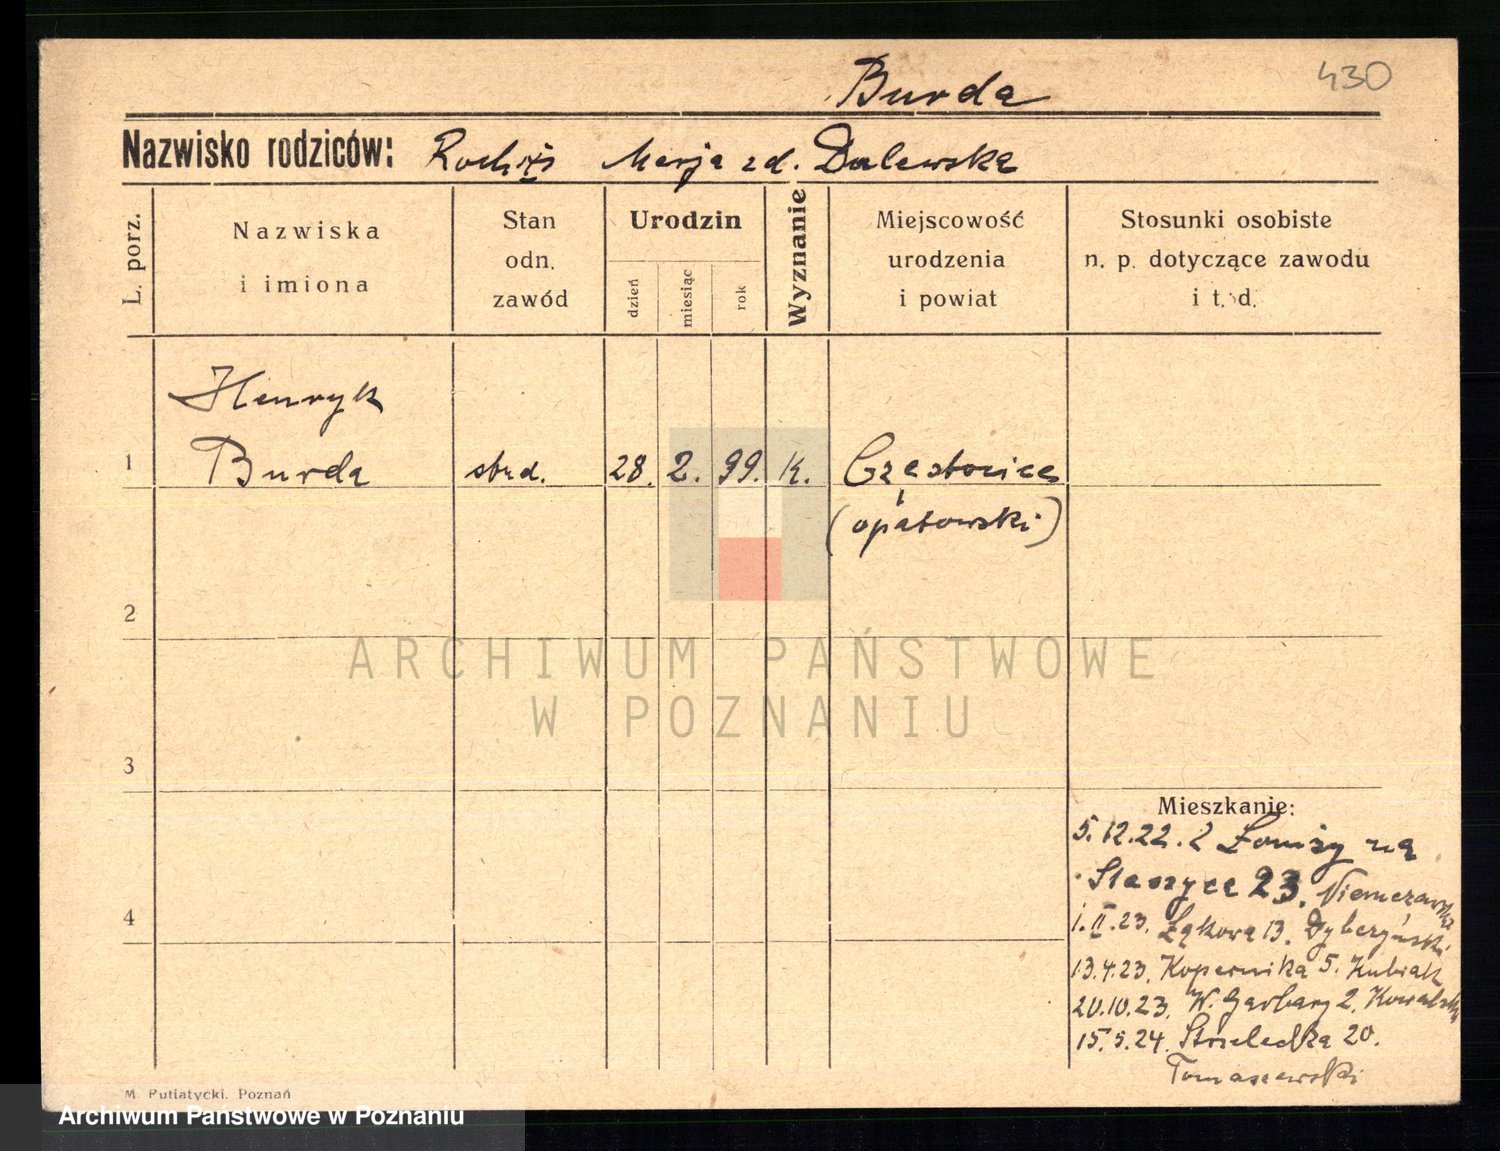 Burda
430
Nazwisko rodziców: Rochus Marja zd. Dalewska
L. porz.
Nazwiska
i imiona
Stan
odn.
zawód
Urodzin
dzień
miesiąc
rok
Wyznanie
Miejscowość
urodzenia
i powiat
Stosunki osobiste
n. p. dotyczące zawodu
i t. d.
Henryk
1 Burda stud. 28. 2. 99. k. Częstocice
(opatowski)
2
3
4
Mieszkanie:
5.12.22. z Łomży na
Staszyca 23. Niemczewska
1.II.23. Łąkowa 13. Dyberzyński
13.4.23. Kopernika 5. Kubiak
20.10.23. W. Garbary 2. Kowalska
15.5.24. Strzelecka 20.
Tomaszewski
M. Putiatycki. Poznań
ARCHIWUM PAŃSTWOWE
W POZNANIU
Archiwum Państwowe w Poznaniu